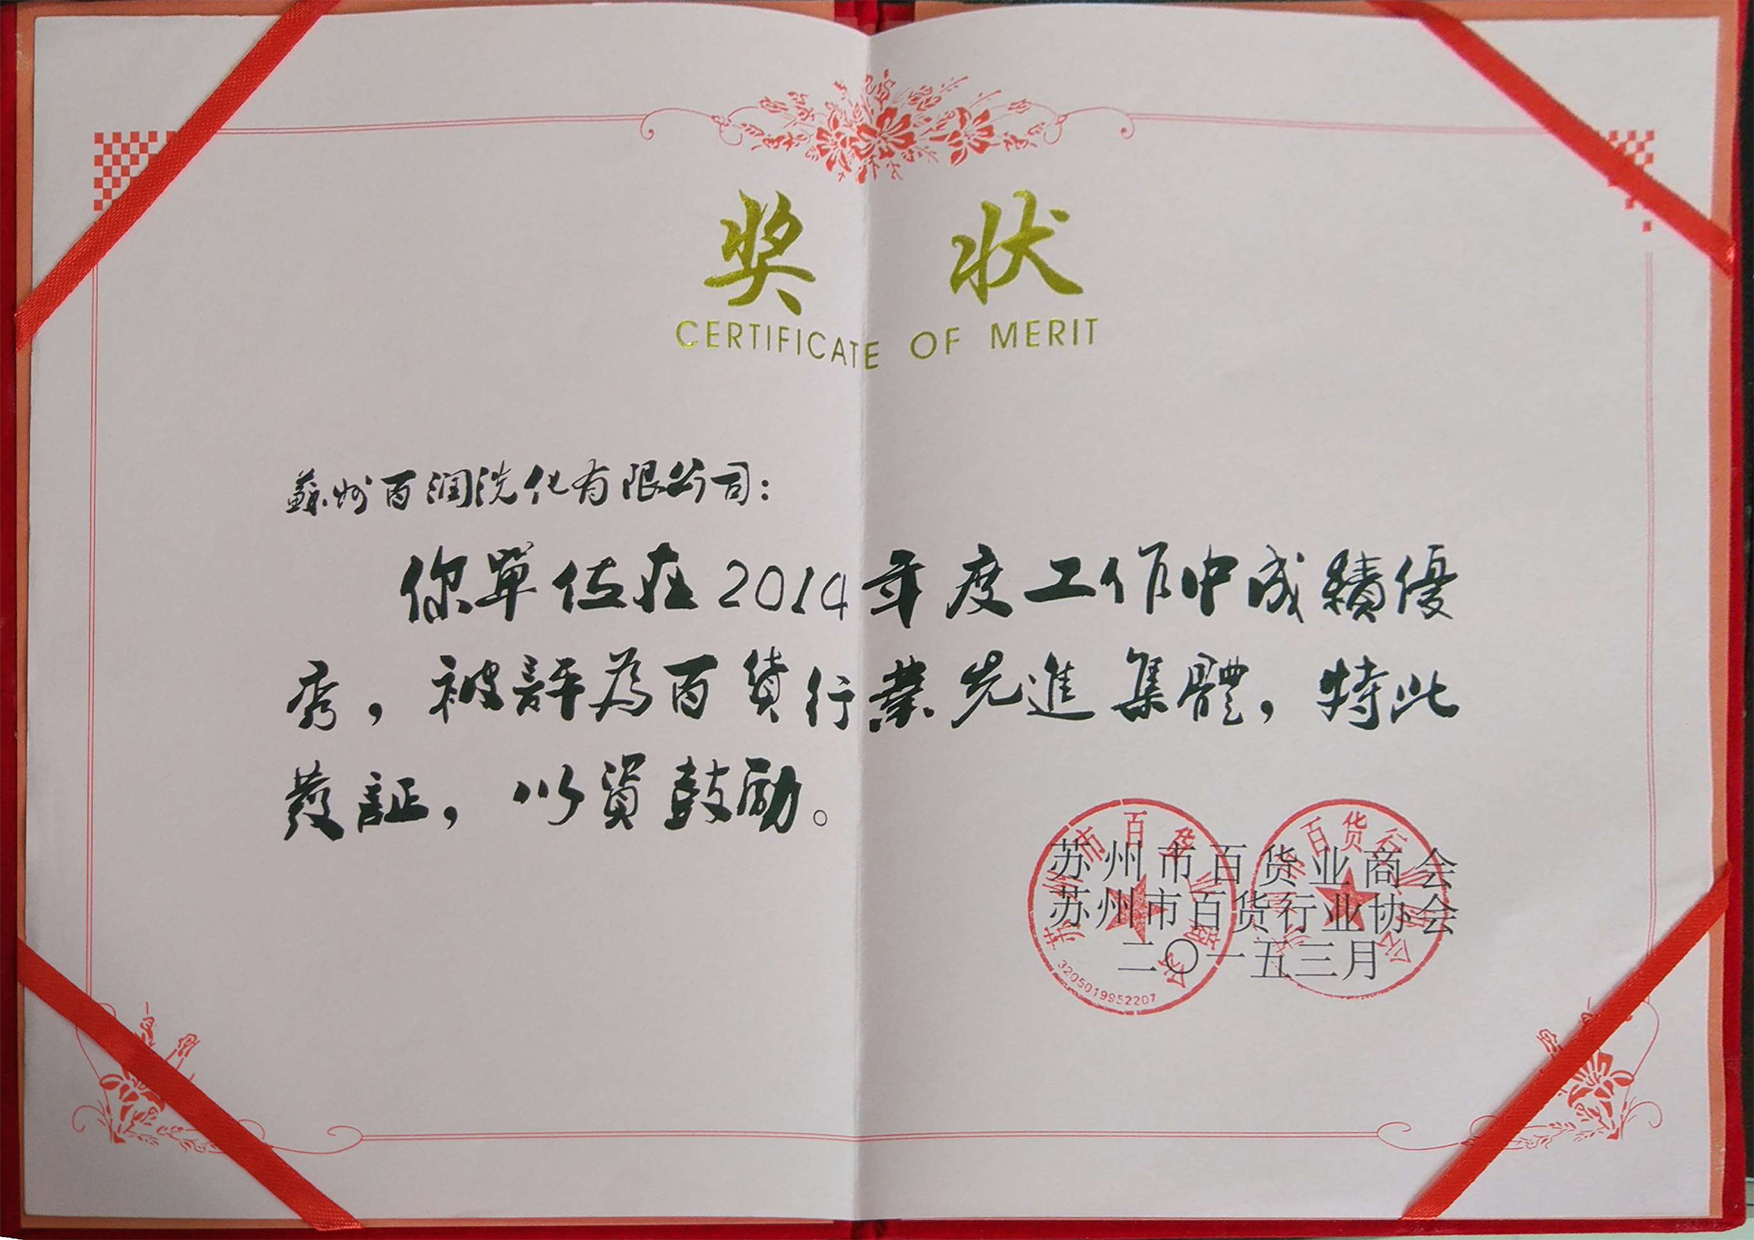 奖 状
CERTIFICATE OF MERIT
蘇州百润洗化有限公司：
你單位在2014年度工作中成績優
秀，被評為百貨行業先進集體，特此
發証，以資鼓励。
苏州市百货业商会
苏州市百货行业协会
二〇一五三月
3205019952207